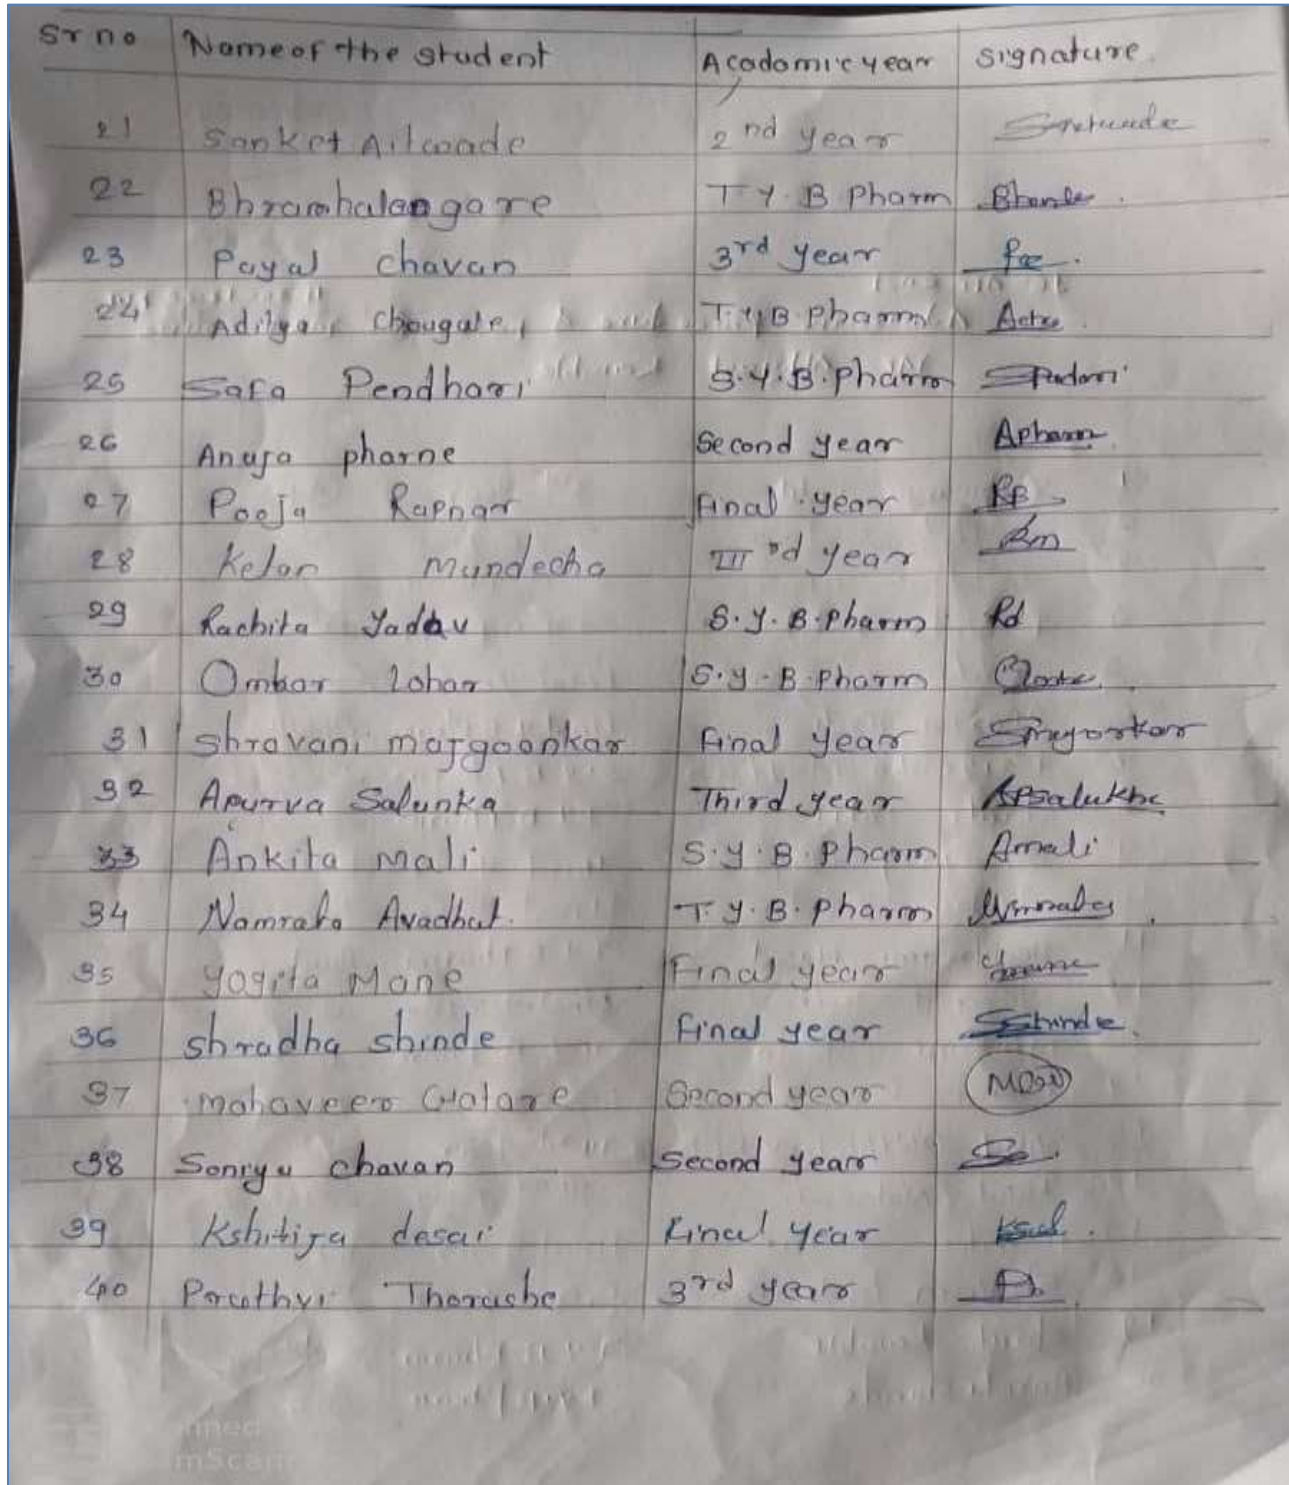 Sr no Name of the student Acadamic year signature
21 Sanket Ailwade 2nd year
22 Bhramhalengare T Y. B Pharm
23 Payal chavan 3rd year
24 Aditya Chougale T.Y.B Pharm
25 Safa Pendhari S.Y.B.Pharm
26 Anuja pharne Second year
27 Pooja Rapnar final year RB
28 Ketan Mundecha III rd year
29 Rachita Yadav S.Y.B.Pharm Rd
30 Omkar Lohar S.Y.B.Pharm
31 Shravani majgaonkar final year
32 Apurva Salunka Third year APsalukhe
33 Ankita Mali S.Y.B.Pharm Amali
34 Namrata Avadhut. T.Y.B.Pharm
35 Yogita Mane Final year
36 shradha shinde final year Sshinde
37 mahaveer Gatare Second year
38 chavan Second year
39 Kshitija desai final year
40 Thorushe 3rd year